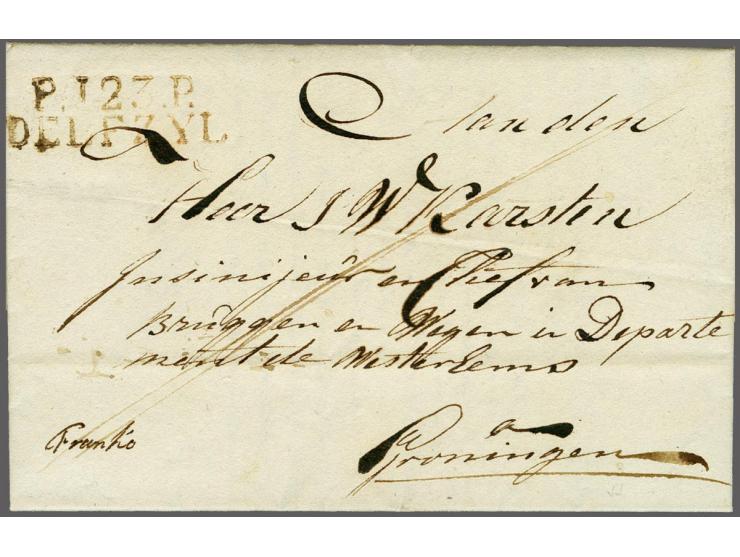 P.123.P.
DELFZYL
Aan den
Heer J W Karsten
Insinijeur en Chef van
Bruggen en Wegen in Departe
ment de Westerlems
Franko
a
Groningen